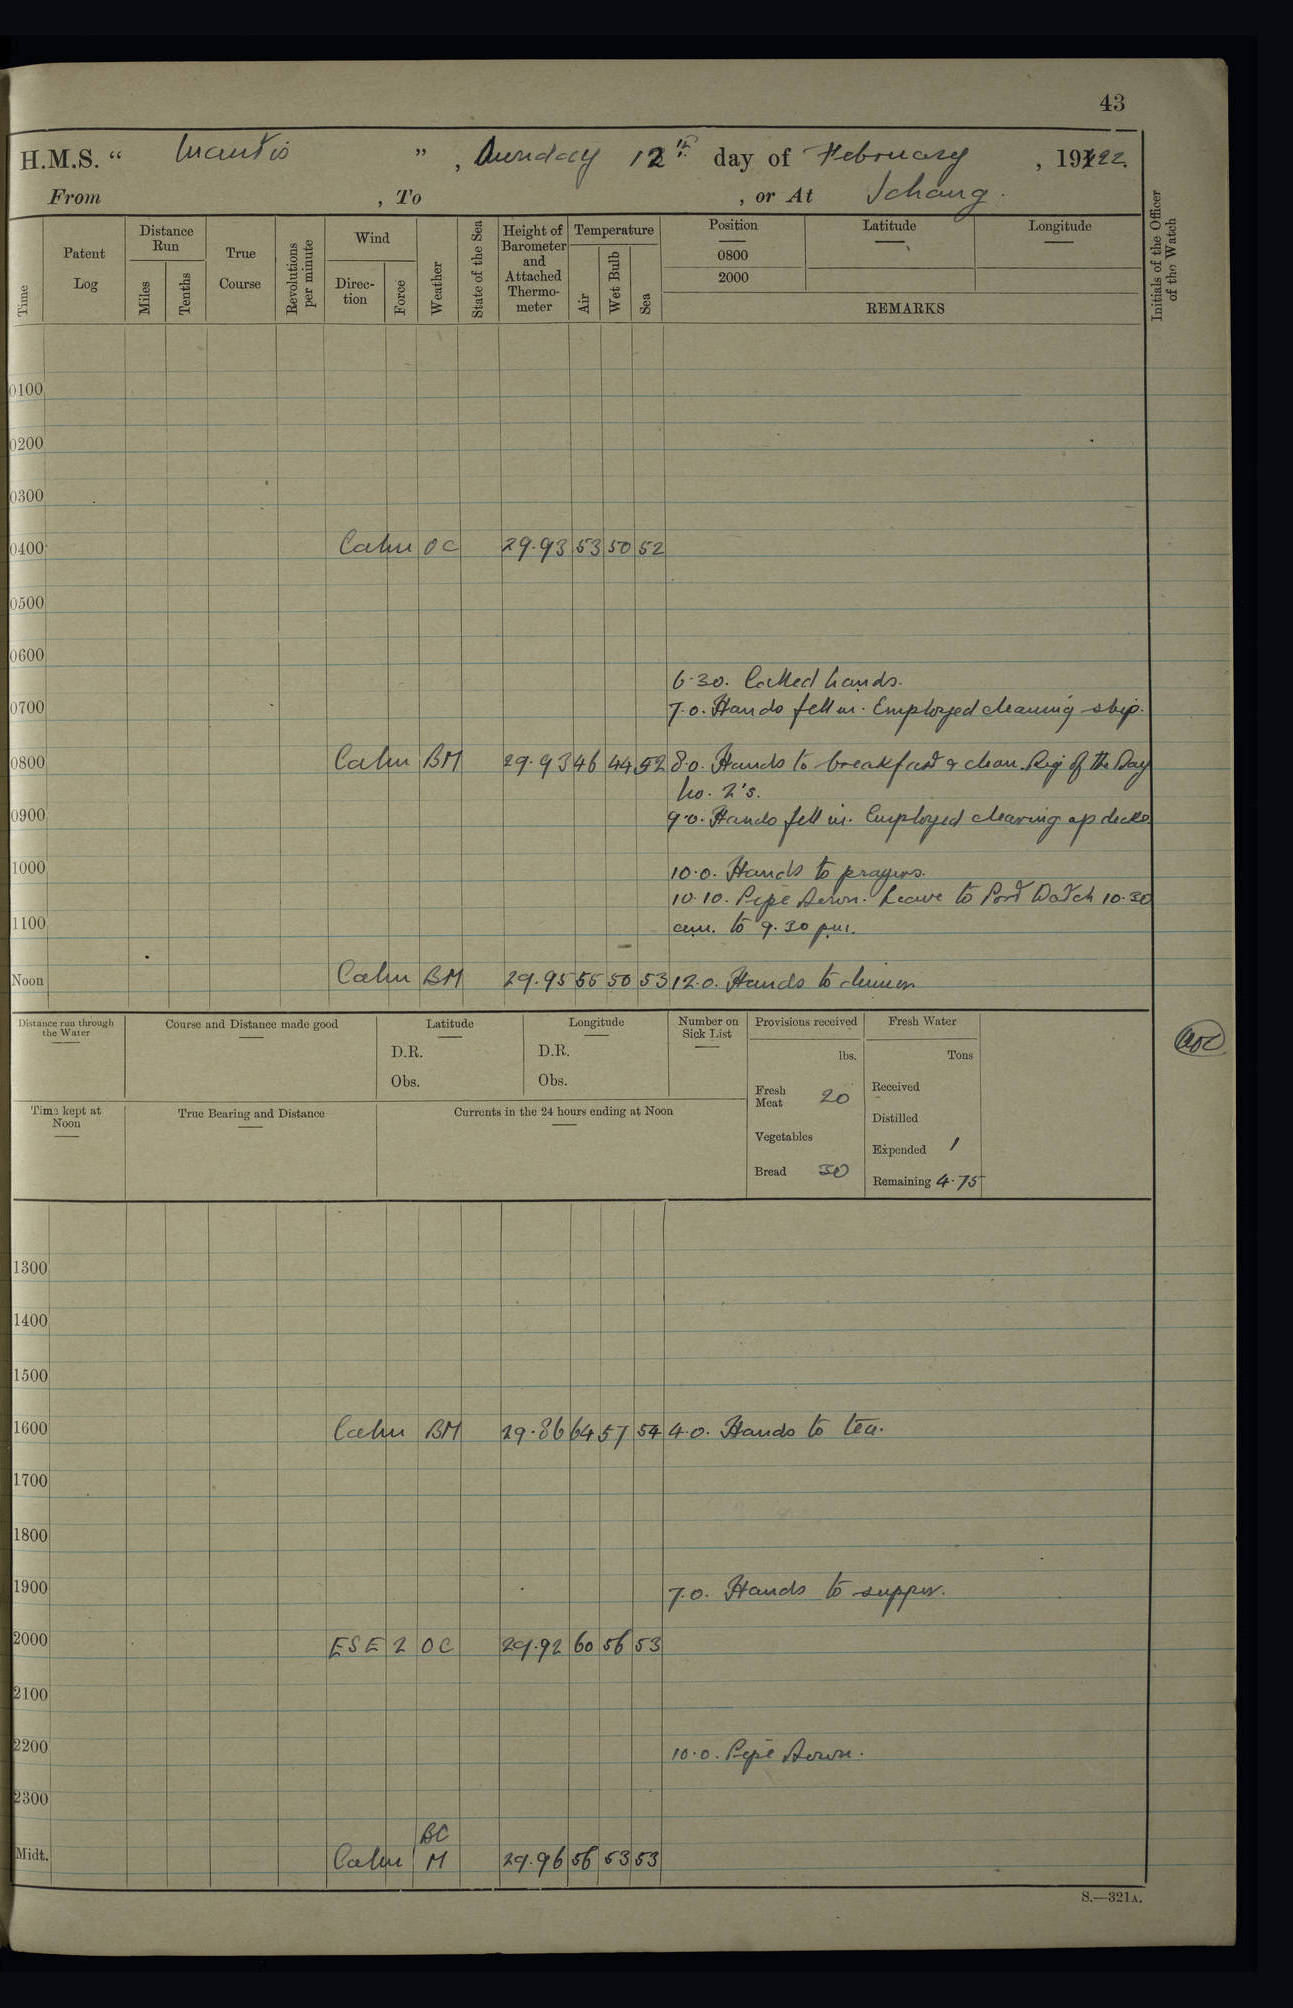 43
H.M.S. “ Mantis ” , Sunday 12th day of February , 1922.
From , To , or At Ichang.
Time
Patent Log
Distance Run
Miles
Tenths
True Course
Revolutions per minute
Wind
Direc-tion
Force
Weather
State of the Sea
Height of Barometer and Attached Thermo-meter
Temperature
Air
Wet Bulb
Sea
Position
0800
2000
Latitude
Longitude
REMARKS
Initials of the Officer of the Watch
0100
0200
0300
0400 Calm OC 29.93 53 50 52
0500
0600
6.30. Called hands.
0700 7.0. Hands fell in. Employed cleaning ship.
0800 Calm BM 29.93 46 44 52 8.0. Hands to breakfast & clean. Rig of the Day
No. 2's.
0900 9.0. Hands fell in. Employed clearing up decks
1000 10.0. Hands to prayers.
10.10. Pipe Down. Leave to Port Watch 10.30
1100 am. to 9.30 pm.
Noon Calm BM 29.95 55 50 53 12.0. Hands to dinner
Distance run through the Water
Course and Distance made good
Latitude
D.R.
Obs.
Longitude
D.R.
Obs.
Number on Sick List
Provisions received
lbs.
Fresh Meat 20
Vegetables
Bread 30
Fresh Water
Tons
Received
Distilled
Expended 1
Remaining 4.75
Time kept at Noon
True Bearing and Distance
Currents in the 24 hours ending at Noon
1300
1400
1500
1600 Calm BM 29.86 64 57 54 4.0. Hands to tea.
1700
1800
1900 7.0. Hands to supper.
2000 ESE 2 OC 29.92 60 56 53
2100
2200 10.0. Pipe Down.
2300
BC
Midt. Calm M 29.96 56 53 53
S.—321A.